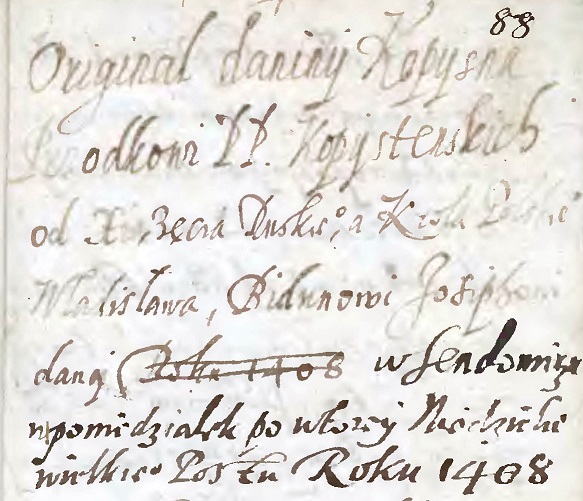 88
Original daniny Kopysna
Przodkowi PP. Kopystenskich
od Xiążęcia Ruskieo, a Krola Polskieo
Wladislawa, Bidunowi Josiphowi
dany Roku 1408 w Sendomirzu
w poniedzialek po wtorey Niedzieli
wielkieo Postu Roku 1408